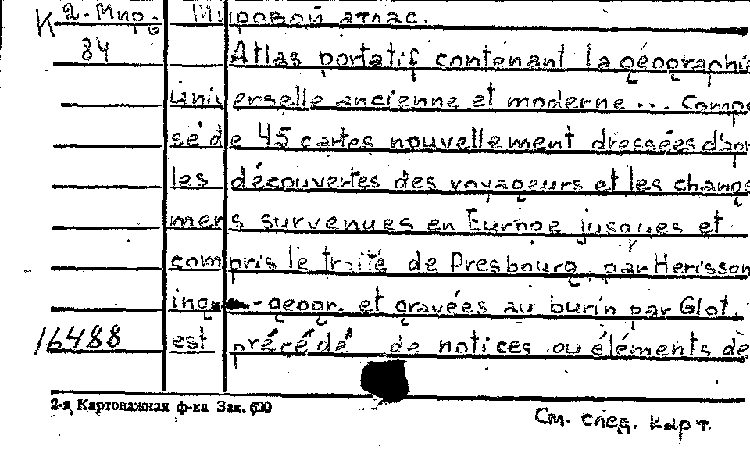 К 2-Мир. Мировой атлас.
84 Atlas portatif contenant la géographie
universelle ancienne et moderne ... compo
sé de 45 cartes nouvellement dressées d'apr
les découvertes des voyageurs et les change
mens survenues en Europe jusques et
compris le traité de Presbourg, par Herisson
ing -geogr. et gravées au burin par Glot.
16488 est précédé de notices ou éléments de
2-я Картонажная ф-ка Зак. 690
См. след. карт.